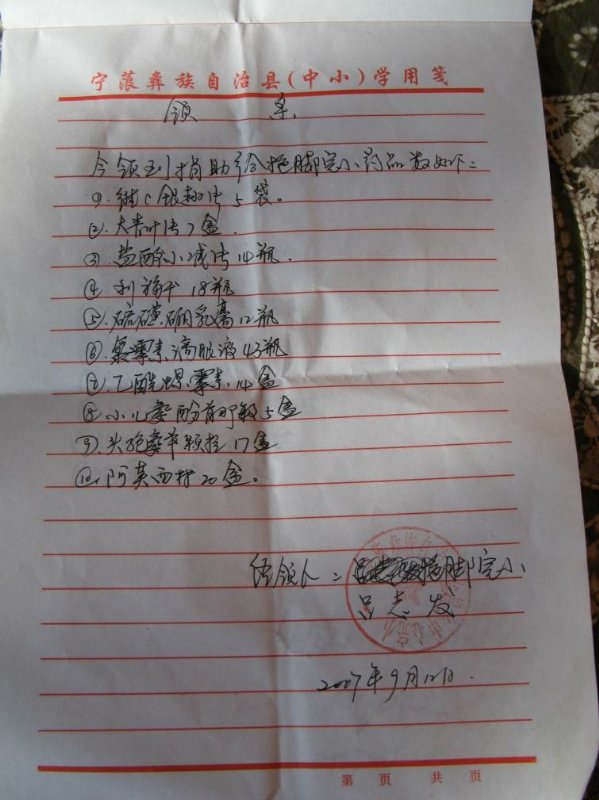 宁蒗彝族自治县(中小)学用笺
领 条
今领到捐助给拖脚完小药品数如下:
①.维C银翘片5袋。
②.大青叶片7盒.
③.盐酸小
④.利福平18瓶
⑤.硫 硼乳膏12瓶
⑥.氯霉素滴眼液43瓶
⑦.乙酰螺旋霉素14盒
⑧.小儿氨酚黄那敏5盒
⑨.头孢氨苄颗粒17盒
⑩.阿莫西林20盒。
经领人: 拖脚完小
吕志发
2007年9月12日.
第 页 共 页